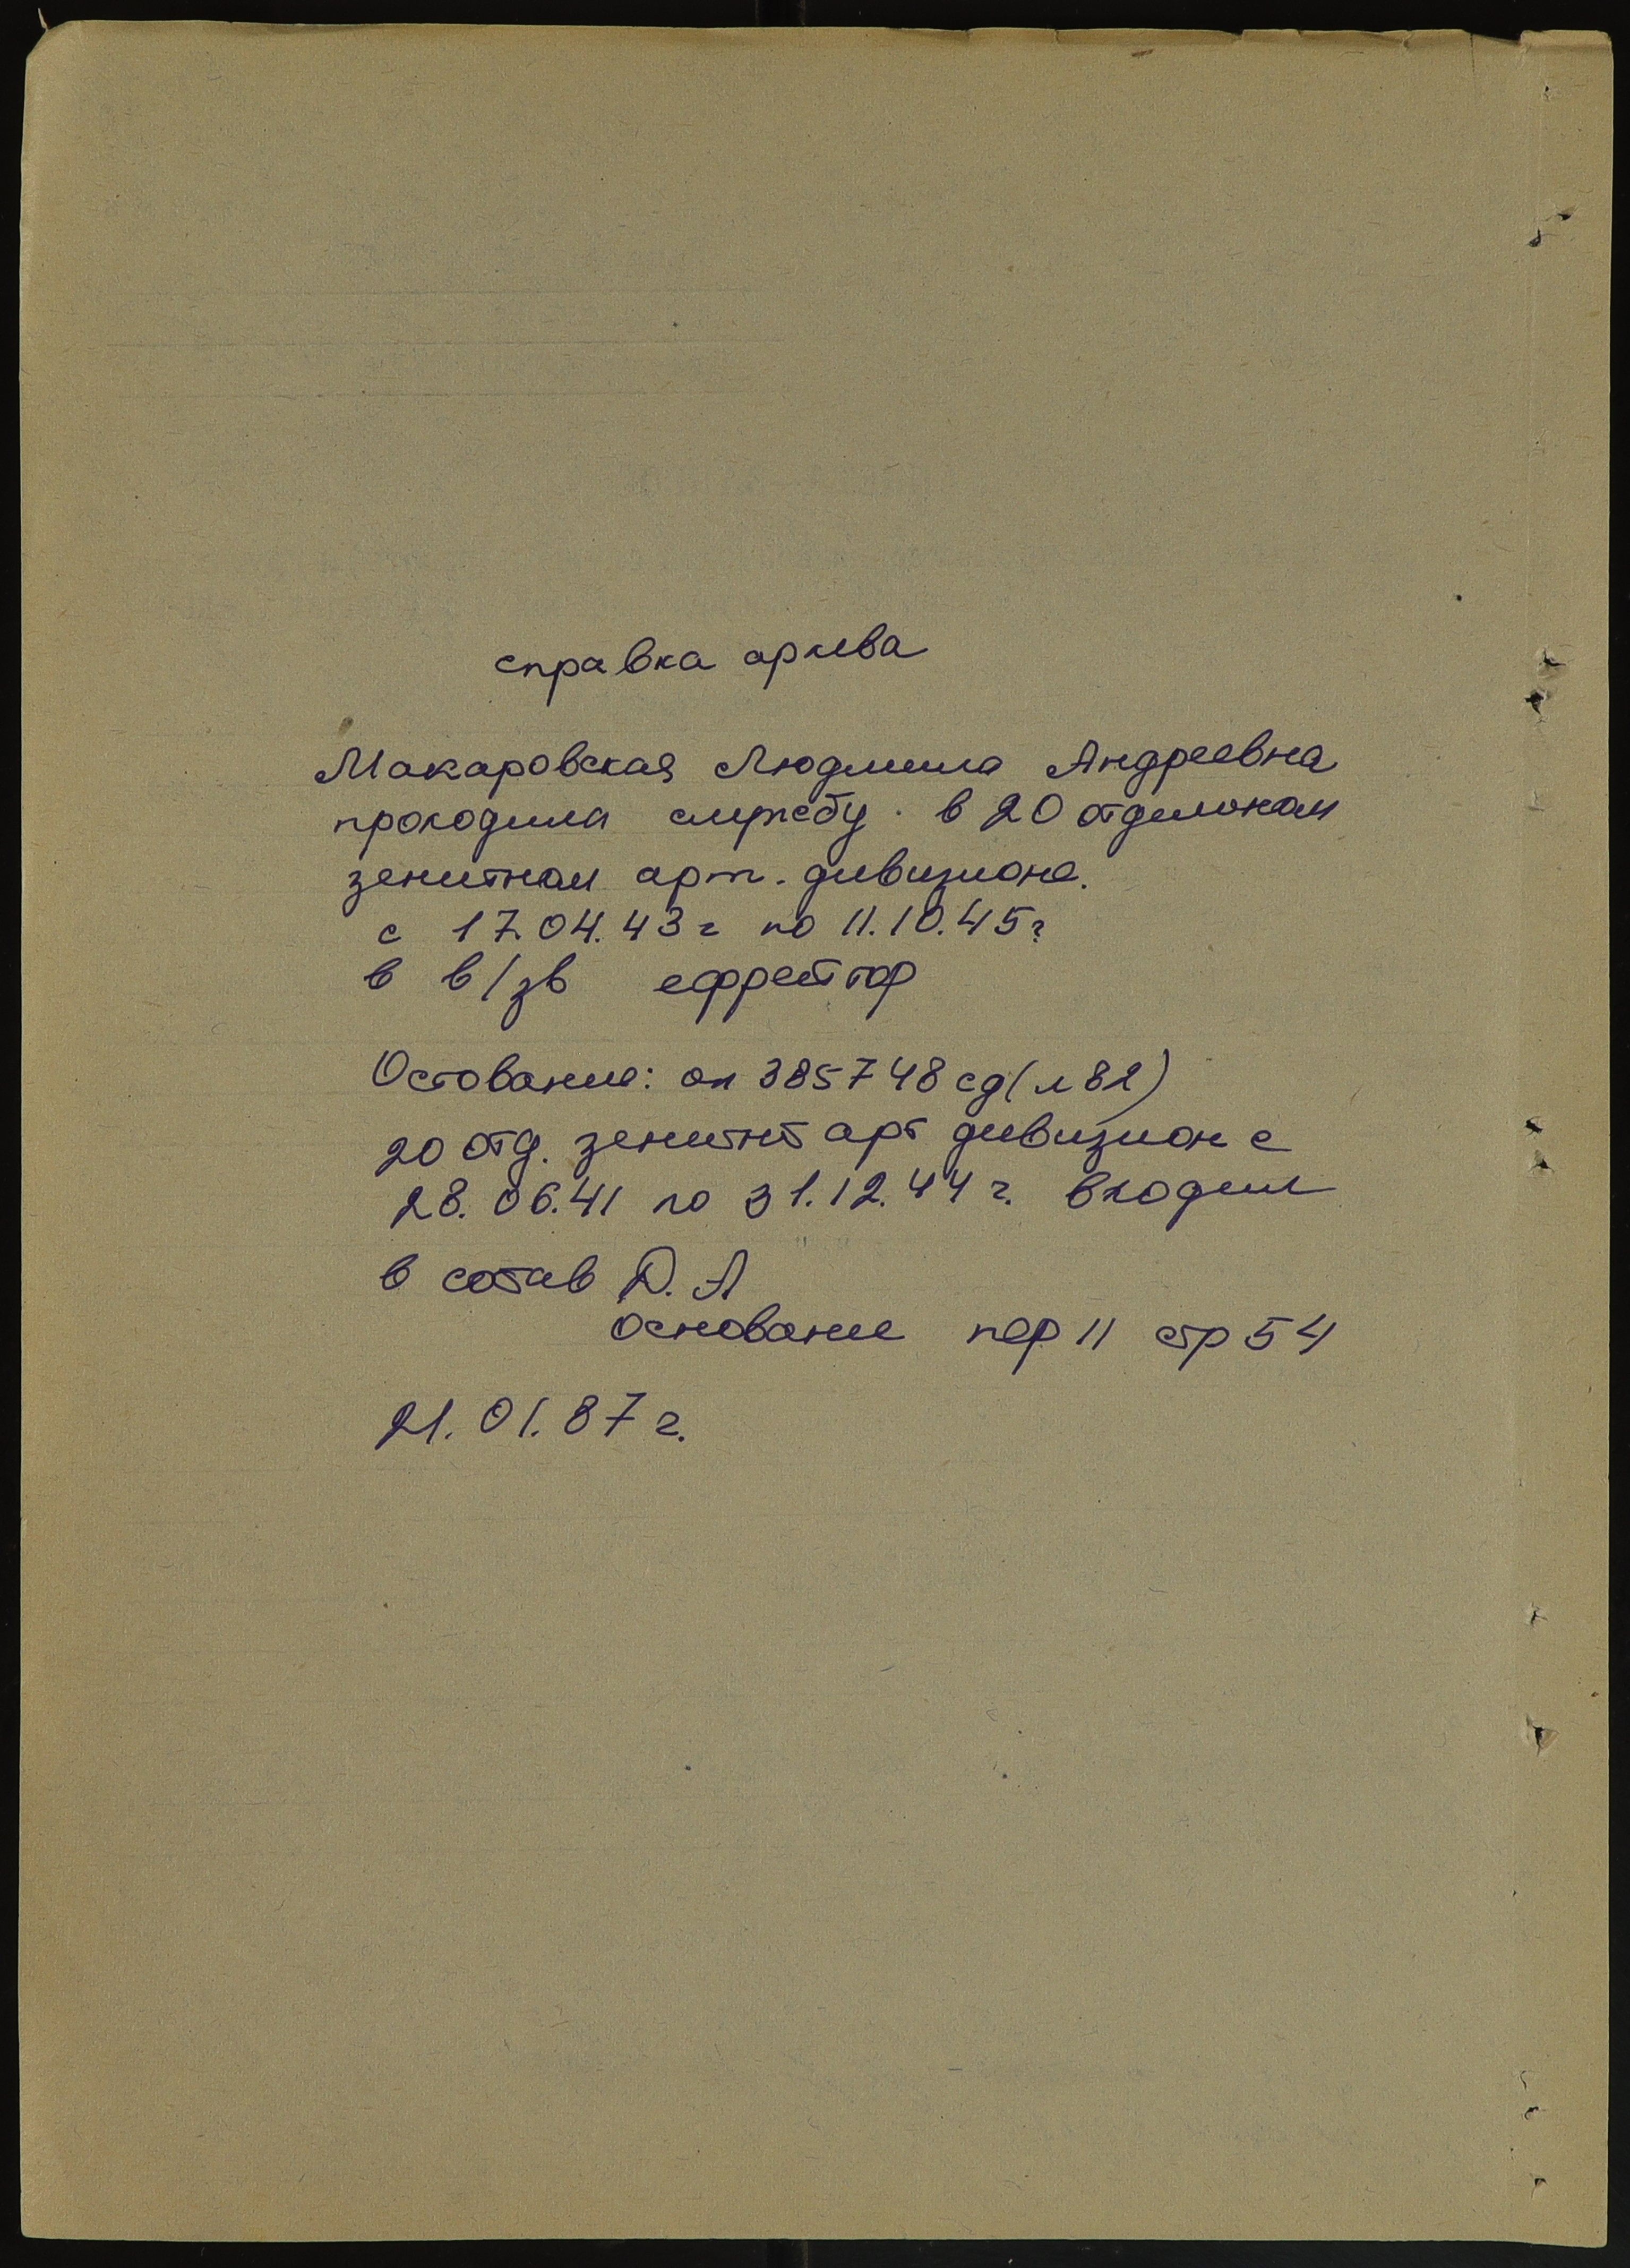 справка архива
Макаровская Людмила Андреевна
проходила службу в 20 отдельном
зенитном арт. дивизионе.
с 17.04.43г по 11.10.45г
в в/зв ефрейтор
Остование: оп 385748сд(л82)
20 отд. зенитн арт дивизион с
28.06.41 по 31.12.44г. входил
в состав Д.А
основание пер 11 стр 54
21.01.87г.